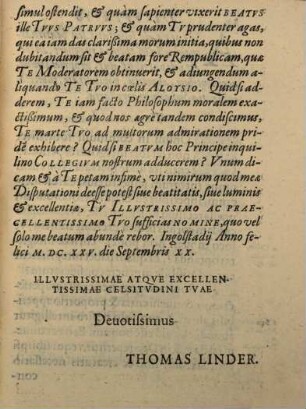 simul ostendit, & quàm sapienter vixerit BEATUS
ille TVVS PATRVVS; & quàm TV prudenter agas,
qui ea iam das clarißima morum initia, quibus non
dubitandum sit & beatam fore Rempublicam, quæ
TE Moderatorem obtinuerit, & adiungendum a-
liquando TE TVO in cœlis ALOYSIO. Quid si ad-
derem, TE iam facto Philosophum moralem exa-
ctißimum, & quod nos agrè tandem condiscimus,
TE marte TVO ad multorum admirationem pri-
dè exhibere? Quid si BEATVM hoc Principe inqui-
lino COLLEGIVM nostrum adducerem? Vnum di-
cam & à TE petam infimè, vti nimirum quod meæ
Disputationi deesse potest siue beatitatis, siue luminis
& excellentiæ, TV ILLVSTRISSIMO AC PRAE-
CELLENTISSIMO TVO sufficias NOMINE, quo vel
solo me beatum abundè rebor. Ingolstadij Anno fe-
lici M. DC. XXV. die Septembris XX.
ILLVSTRISSIMAE ATQVE EXCELLEN-
TISSIMAE CELSITVDINI TVAE
Deuotissimus
THOMAS LINDER.